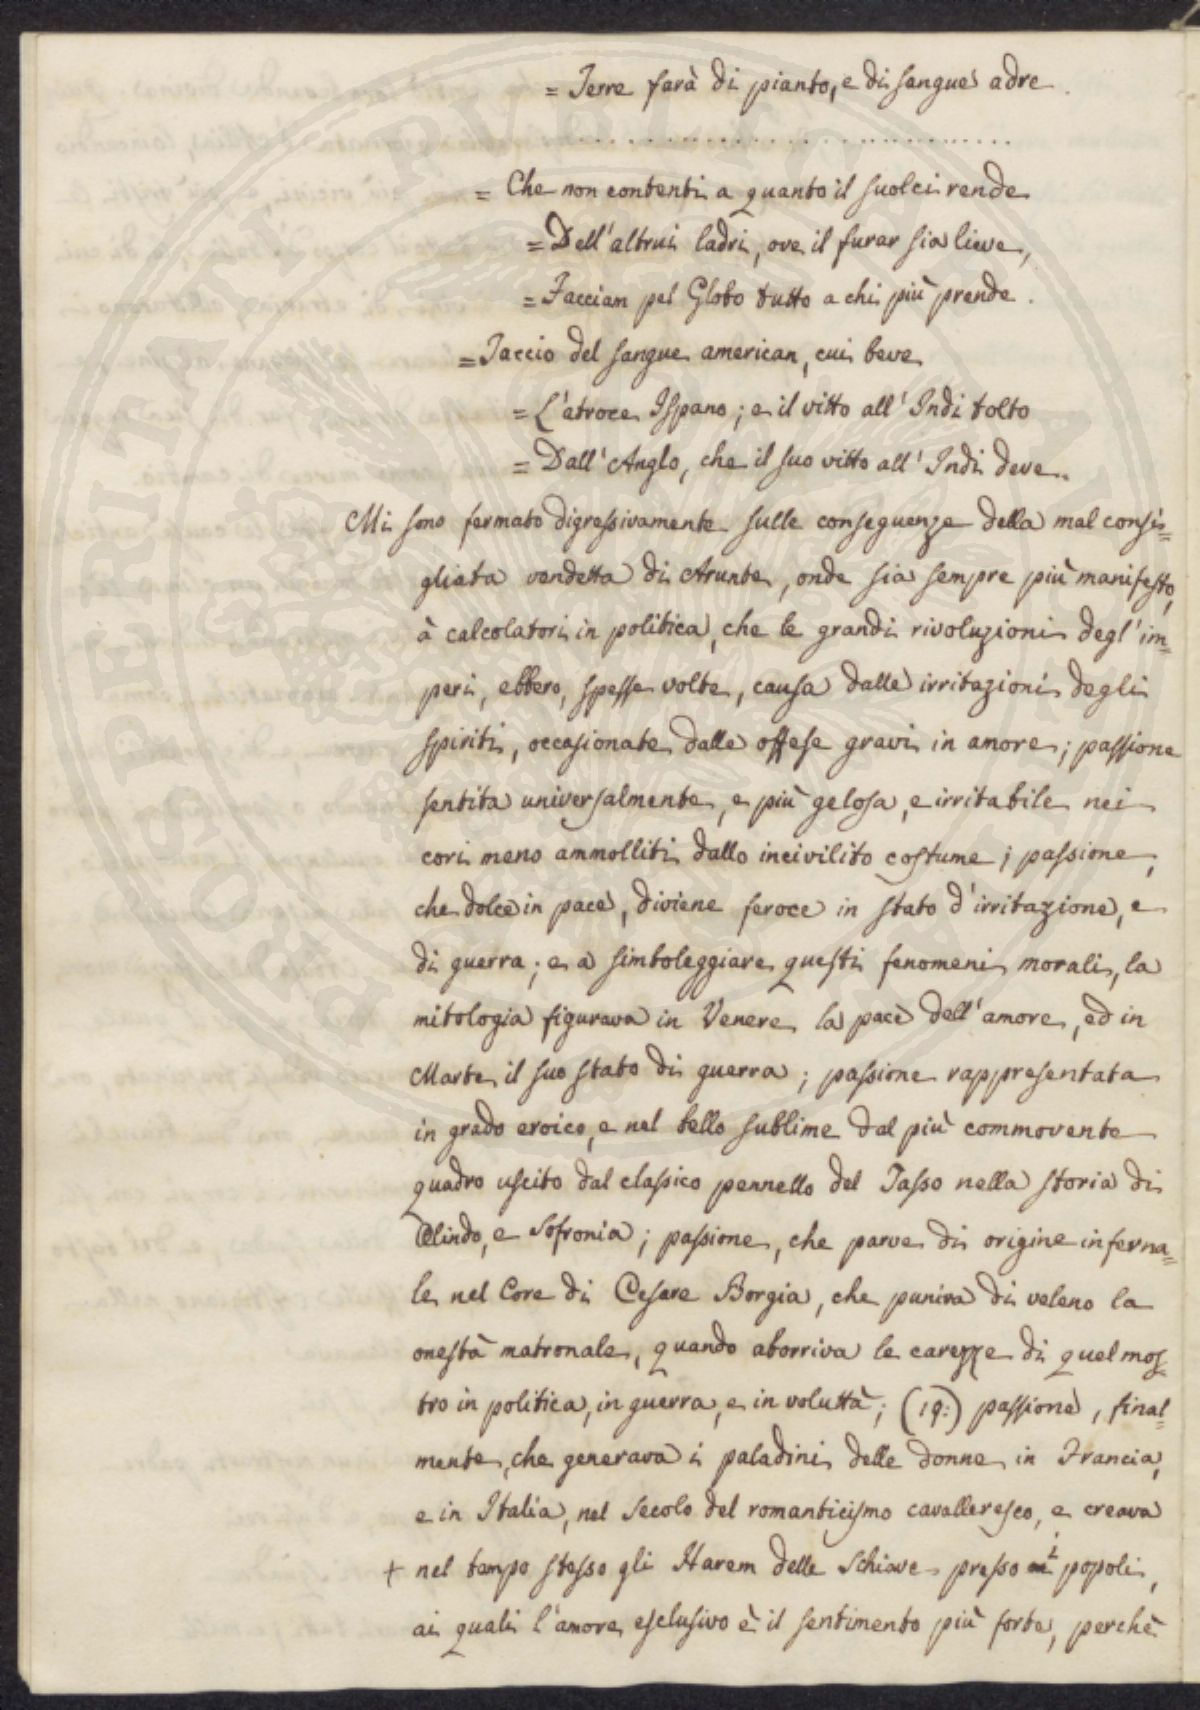 = Terre farà di pianto, e di sangue adre.
........................................
= Che non contenti a quanto il suol ci rende
= Dell'altrui ladri, ove il furar sia lieve,
= Facciam pel Globo tutto a chi più prende.
= Taccio del sangue american, cui beve
= L'atroce Ispano; e il vitto all'Indi tolto
= Dall'Anglo, che il suo vitto all'Indi deve.
Mi sono fermato digressivamente sulle conseguenze della mal consi=
gliata vendetta di Arunte, onde sia sempre più manifesto,
à calcolatori in politica, che le grandi rivoluzioni degl'im=
peri, ebbero, spesse volte, causa dalle irritazioni degli
spiriti, occasionate dalle offese gravi in amore; passione
sentita universalmente, e più gelosa, e irritabile nei
cori meno ammolliti dallo incivilito costume; passione,
che dolce in pace, diviene feroce in stato d'irritazione, e
di guerra; e a simboleggiare questi fenomeni morali, la
mitologia figurava in Venere la pace dell'amore, ed in
Marte il suo stato di guerra; passione rappresentata
in grado eroico, e nel bello sublime dal più commovente
quadro uscito dal classico pennello del Tasso nella storia di
Olindo, e Sofronia; passione, che parve di origine inferna=
le nel Core di Cesare Borgia, che puniva di veleno la
onestà matronale, quando aborriva le carezze di quel mos=
tro in politica, in guerra, e in voluttà; (19:) passione, final=
mente, che generava i paladini delle donne in Francia,
e in Italia, nel Secolo del romanticismo cavalleresco, e creava
+ nel tempo stesso gli Harem delle Schiave presso i popoli,
ai quali l'amore esclusivo è il sentimento più forte, perchè
PROSPERITATI PUBLICAE AUGENDAE